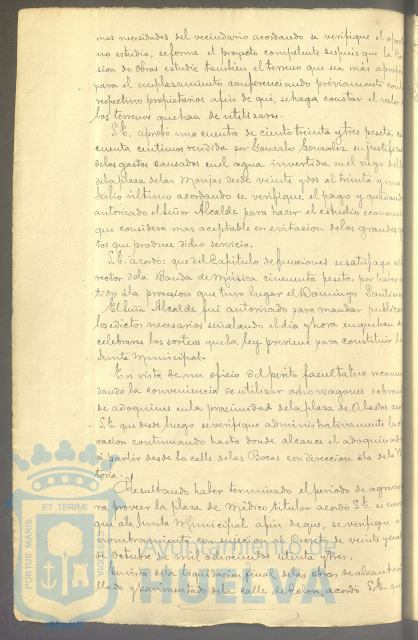 mas necesidades del vecindario acordando se verifique el oportu
no estudio, se forme el proyecto competente después que la Co
sion de obras estudie tambien el terreno que sea más apropia
para el emplazamiento conferenciando préviamente con l
respectivos propietarios afin de que, se haga constar el valor d
los terrenos que han de utilizarse.
S.E. aprobó una cuenta de ciento treinta y tres pesetas
cuenta centimos rendida por Gonzalo Gonzalez en justific
de los gastos causados en el agua invertida en el riego del
de la plaza de las Monjas desde veinte y dos al treinta y uno
Julio último acordando se verifique el pago y quedando
autorizado el Señor Alcalde para hacer el estudio economi
que considere mas aceptable en evitacion de los grandes
tos que produce dicho servicio.
S.E. acordó: que del Capitulo de funciones se satisfaga al
rector de la Banda de Música cincuenta pesetas, por haber
tido á la procesion que tuvo lugar el Domingo
El Señor Alcalde fué autorizado para mandar publicar
los edictos necesarios señalando el dia y hora en que han d
celebrarse los sorteos que la ley previene para constituir la
Junta Municipal.
En vista de un oficio del perito facultativo recomen
dando la conveniencia de utilizar ocho vagones
de adoquines en la proximidad de la plaza de Abastos
S.E. que desde luego se verifique administrativamente la
racion continuando hasta donde alcance el adoquinado
á partir desde la calle de las Bocas con direccion á la de la
toria.
Resultando haber terminado el periodo de
ra proveer la plaza de Médico titular acordó S.E. se
que á la Junta Municipal afin de que, se verifique el
nombramiento con sujecion al Decreto de veinte y cuatro
de Octubre de mil ochocientos setenta y tres.
En vista de la liquidacion final de las obras de alcantari
llado y pavimentado de la calle de Colon, acordó S.E. que
PORTUS MARIS
ET TERRAE
Ayuntamiento de
HUELVA